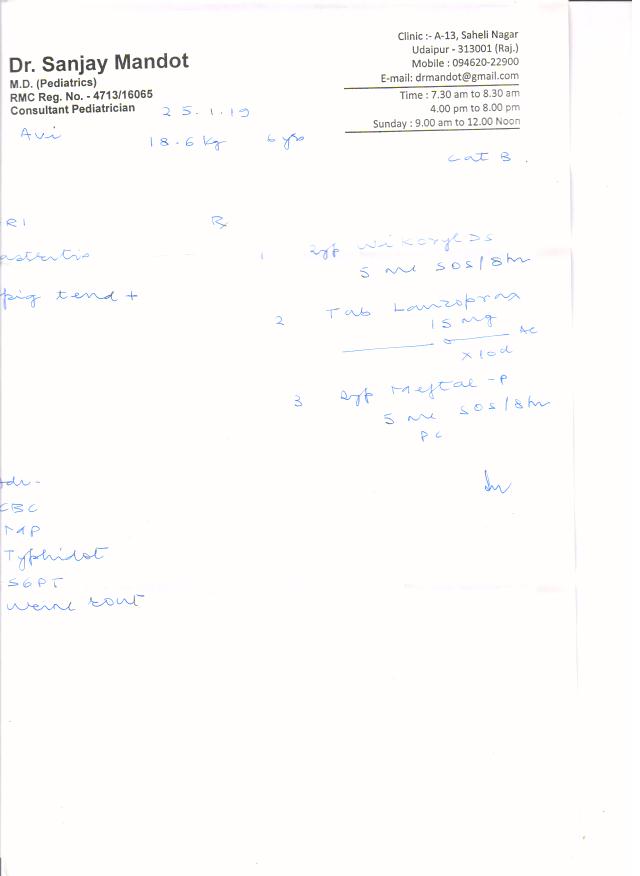 Dr. Sanjay Mandot
M.D. (Pediatrics)
RMC Reg. No. - 4713/16065
Consultant Pediatrician
Clinic :- A-13, Saheli Nagar
Udaipur - 313001 (Raj.)
Mobile : 094620-22900
E-mail: drmandot@gmail.com
Time : 7.30 am to 8.30 am
4.00 pm to 8.00 pm
Sunday : 9.00 am to 12.00 Noon
25.1.19
Avi 18.6 kg 6 yrs
Cat B.
RI Rx
astritis
pig tend +
1 Syp Wikoryl DS
5 ml SOS/8hr
2 Tab Lanzoprax
15 mg
AC
x 10d
3 Syp Meftal-P
5 ml SOS/8hr
PC
Adv-
CBC
MP
Typhidot
SGPT